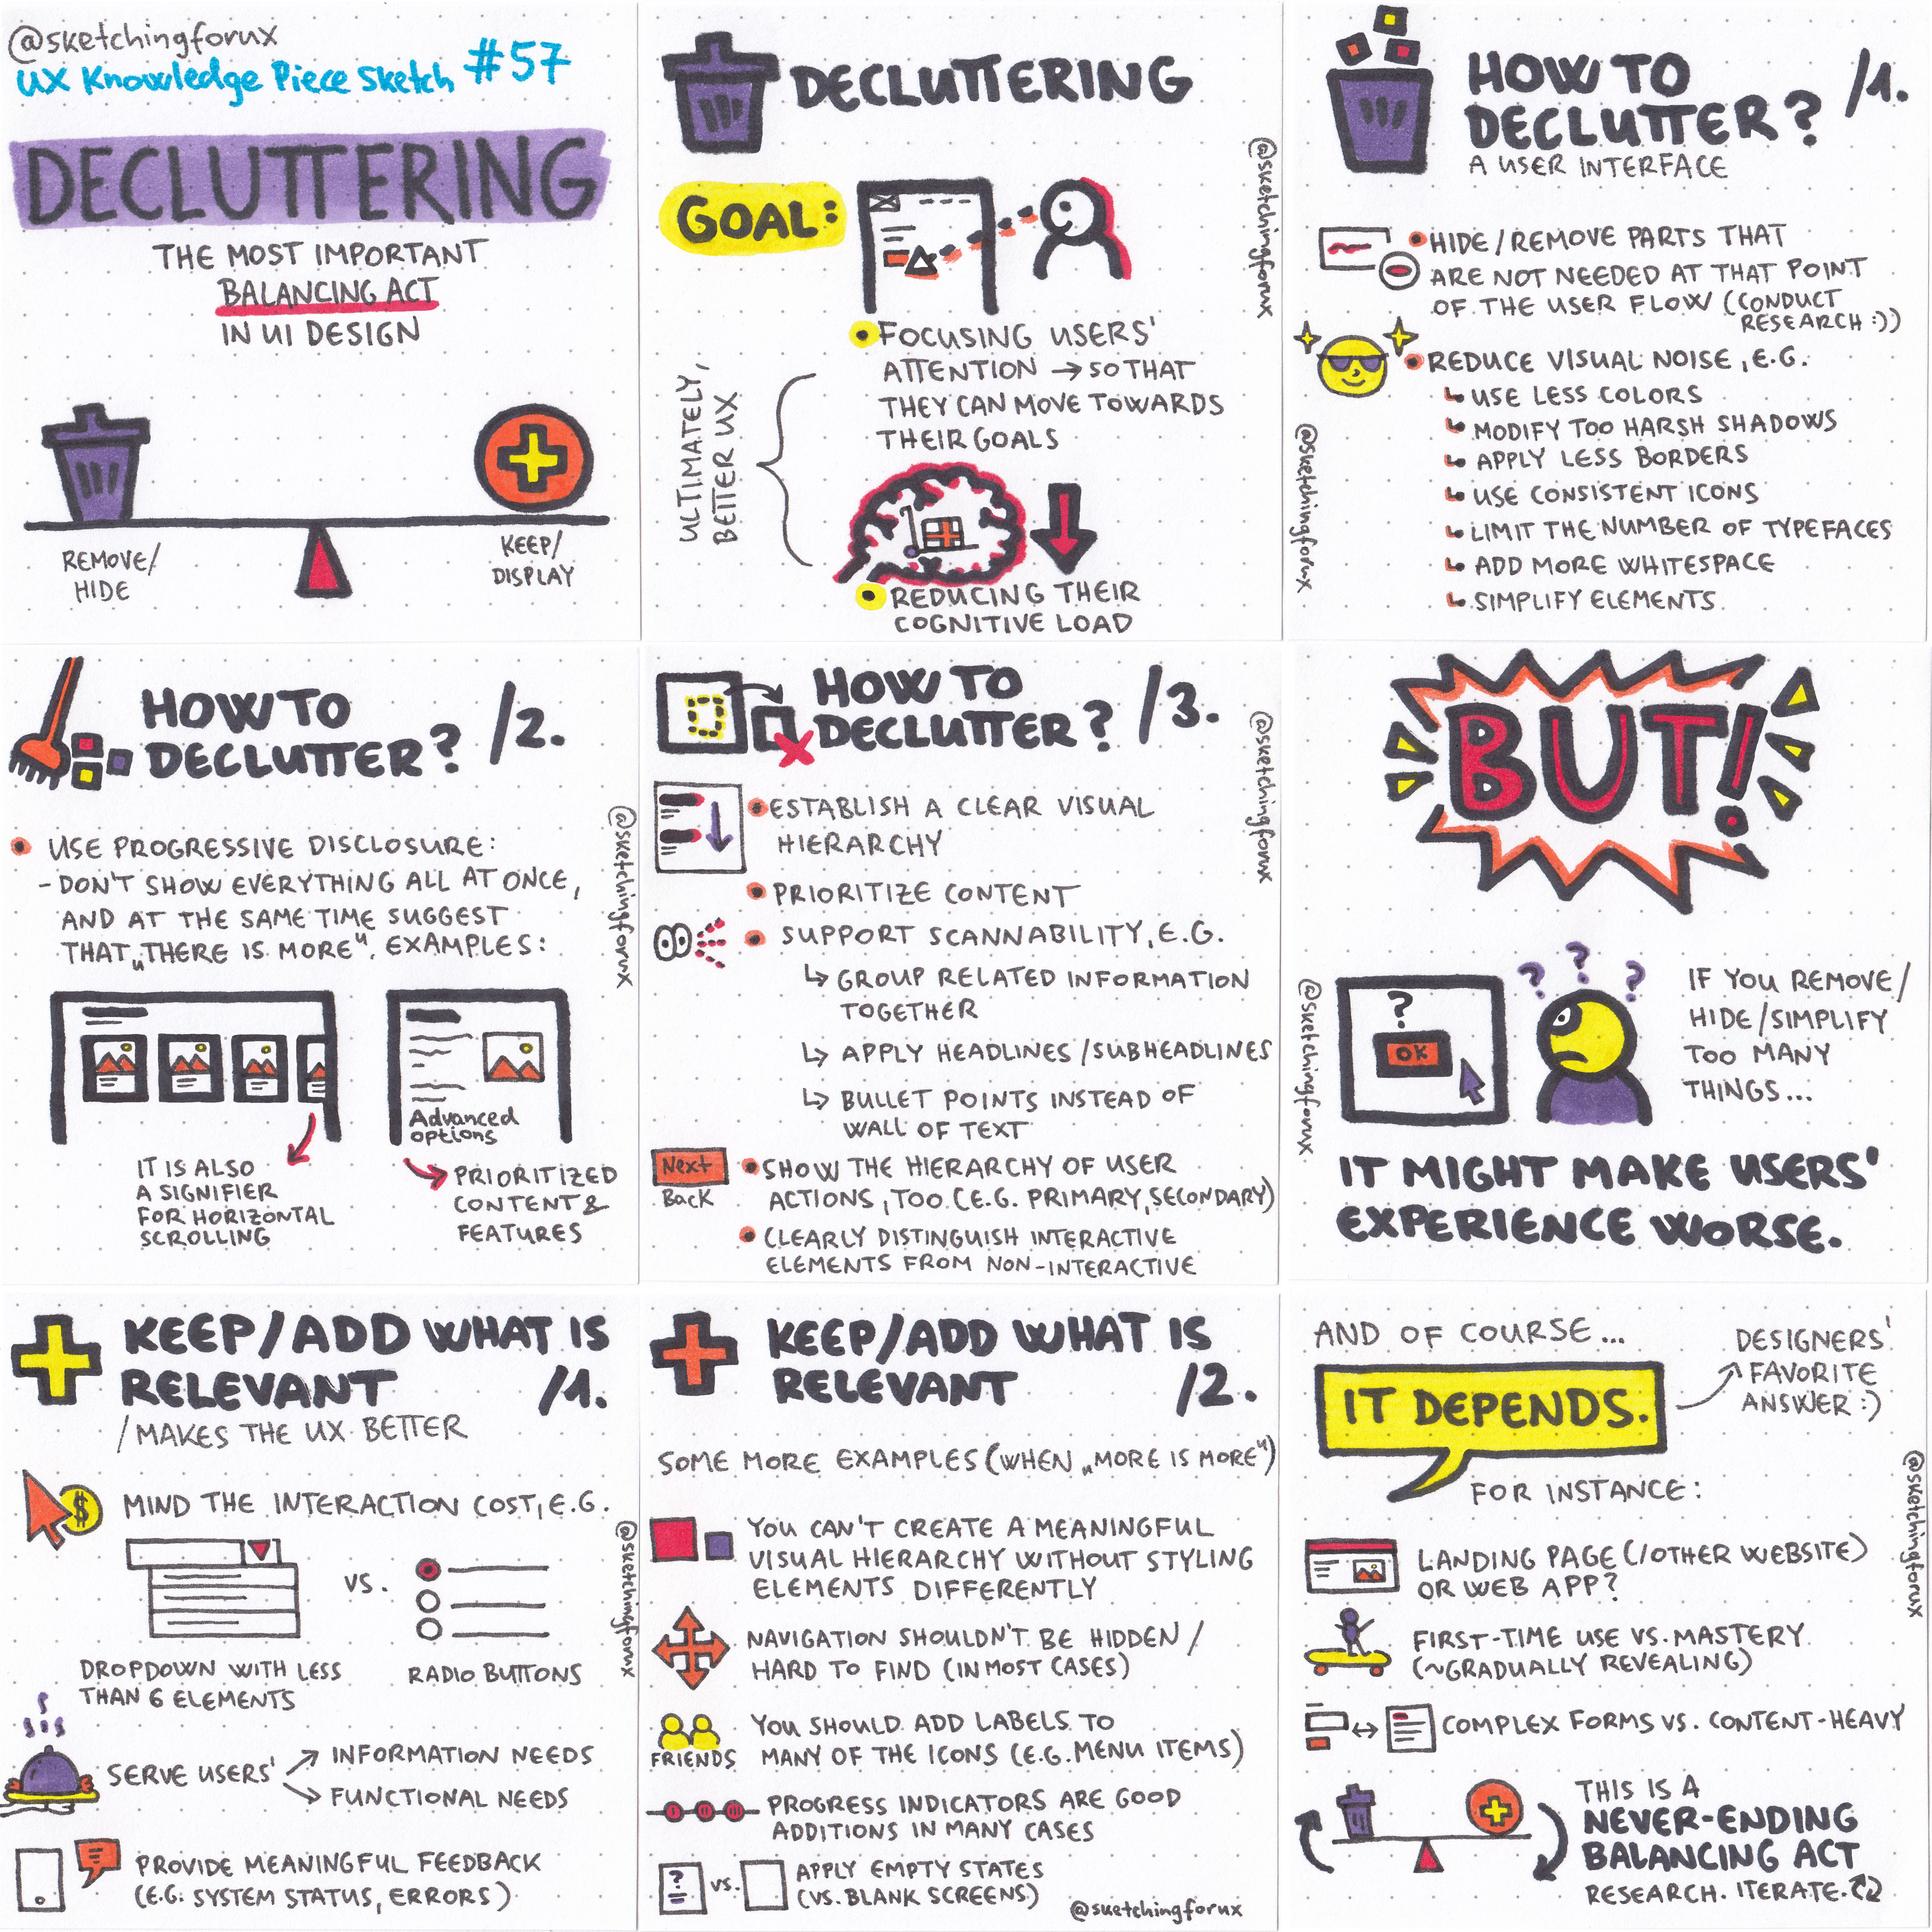 @sketchingforux
UX Knowledge Piece Sketch #57
DECLUTTERING
THE MOST IMPORTANT
BALANCING ACT
IN UI DESIGN
REMOVE/
HIDE
KEEP/
DISPLAY
DECLUTTERING
GOAL:
FOCUSING USERS'
ATTENTION → SO THAT
THEY CAN MOVE TOWARDS
THEIR GOALS
ULTIMATELY,
BETTER UX
REDUCING THEIR
COGNITIVE LOAD
@sketchingforux
HOW TO
DECLUTTER? /1.
A USER INTERFACE
HIDE/REMOVE PARTS THAT
ARE NOT NEEDED AT THAT POINT
OF THE USER FLOW (CONDUCT
RESEARCH :))
REDUCE VISUAL NOISE, E.G.
USE LESS COLORS
MODIFY TOO HARSH SHADOWS
APPLY LESS BORDERS
USE CONSISTENT ICONS
LIMIT THE NUMBER OF TYPEFACES
ADD MORE WHITESPACE
SIMPLIFY ELEMENTS
@sketchingforux
HOW TO
DECLUTTER? /2.
USE PROGRESSIVE DISCLOSURE:
- DON'T SHOW EVERYTHING ALL AT ONCE,
AND AT THE SAME TIME SUGGEST
THAT „THERE IS MORE". EXAMPLES:
Advanced
options
IT IS ALSO
A SIGNIFIER
FOR HORIZONTAL
SCROLLING
PRIORITIZED
CONTENT &
FEATURES
@sketchingforux
HOW TO
DECLUTTER? /3.
ESTABLISH A CLEAR VISUAL
HIERARCHY
PRIORITIZE CONTENT
SUPPORT SCANNABILITY, E.G.
↳ GROUP RELATED INFORMATION
TOGETHER
↳ APPLY HEADLINES/SUBHEADLINES
↳ BULLET POINTS INSTEAD OF
WALL OF TEXT
Next
Back
SHOW THE HIERARCHY OF USER
ACTIONS, TOO (E.G. PRIMARY, SECONDARY)
CLEARLY DISTINGUISH INTERACTIVE
ELEMENTS FROM NON-INTERACTIVE
@sketchingforux
BUT!
?
OK
? ? ?
IF YOU REMOVE/
HIDE/SIMPLIFY
TOO MANY
THINGS...
IT MIGHT MAKE USERS'
EXPERIENCE WORSE.
@sketchingforux
KEEP/ADD WHAT IS
RELEVANT /1.
/MAKES THE UX BETTER
$
MIND THE INTERACTION COST, E.G.
VS.
DROPDOWN WITH LESS
THAN 6 ELEMENTS
RADIO BUTTONS
SERVE USERS'
INFORMATION NEEDS
FUNCTIONAL NEEDS
PROVIDE MEANINGFUL FEEDBACK
(E.G. SYSTEM STATUS, ERRORS)
@sketchingforux
KEEP/ADD WHAT IS
RELEVANT /2.
SOME MORE EXAMPLES (WHEN „MORE IS MORE")
YOU CAN'T CREATE A MEANINGFUL
VISUAL HIERARCHY WITHOUT STYLING
ELEMENTS DIFFERENTLY
NAVIGATION SHOULDN'T BE HIDDEN /
HARD TO FIND (IN MOST CASES)
FRIENDS
YOU SHOULD ADD LABELS TO
MANY OF THE ICONS (E.G. MENU ITEMS)
I II III
PROGRESS INDICATORS ARE GOOD
ADDITIONS IN MANY CASES
?
VS.
APPLY EMPTY STATES
(VS. BLANK SCREENS)
@sketchingforux
AND OF COURSE...
IT DEPENDS.
DESIGNERS'
FAVORITE
ANSWER :)
FOR INSTANCE:
LANDING PAGE (/OTHER WEBSITE)
OR WEB APP?
FIRST-TIME USE VS. MASTERY
(~GRADUALLY REVEALING)
COMPLEX FORMS VS. CONTENT-HEAVY
THIS IS A
NEVER-ENDING
BALANCING ACT
RESEARCH. ITERATE.
@sketchingforux